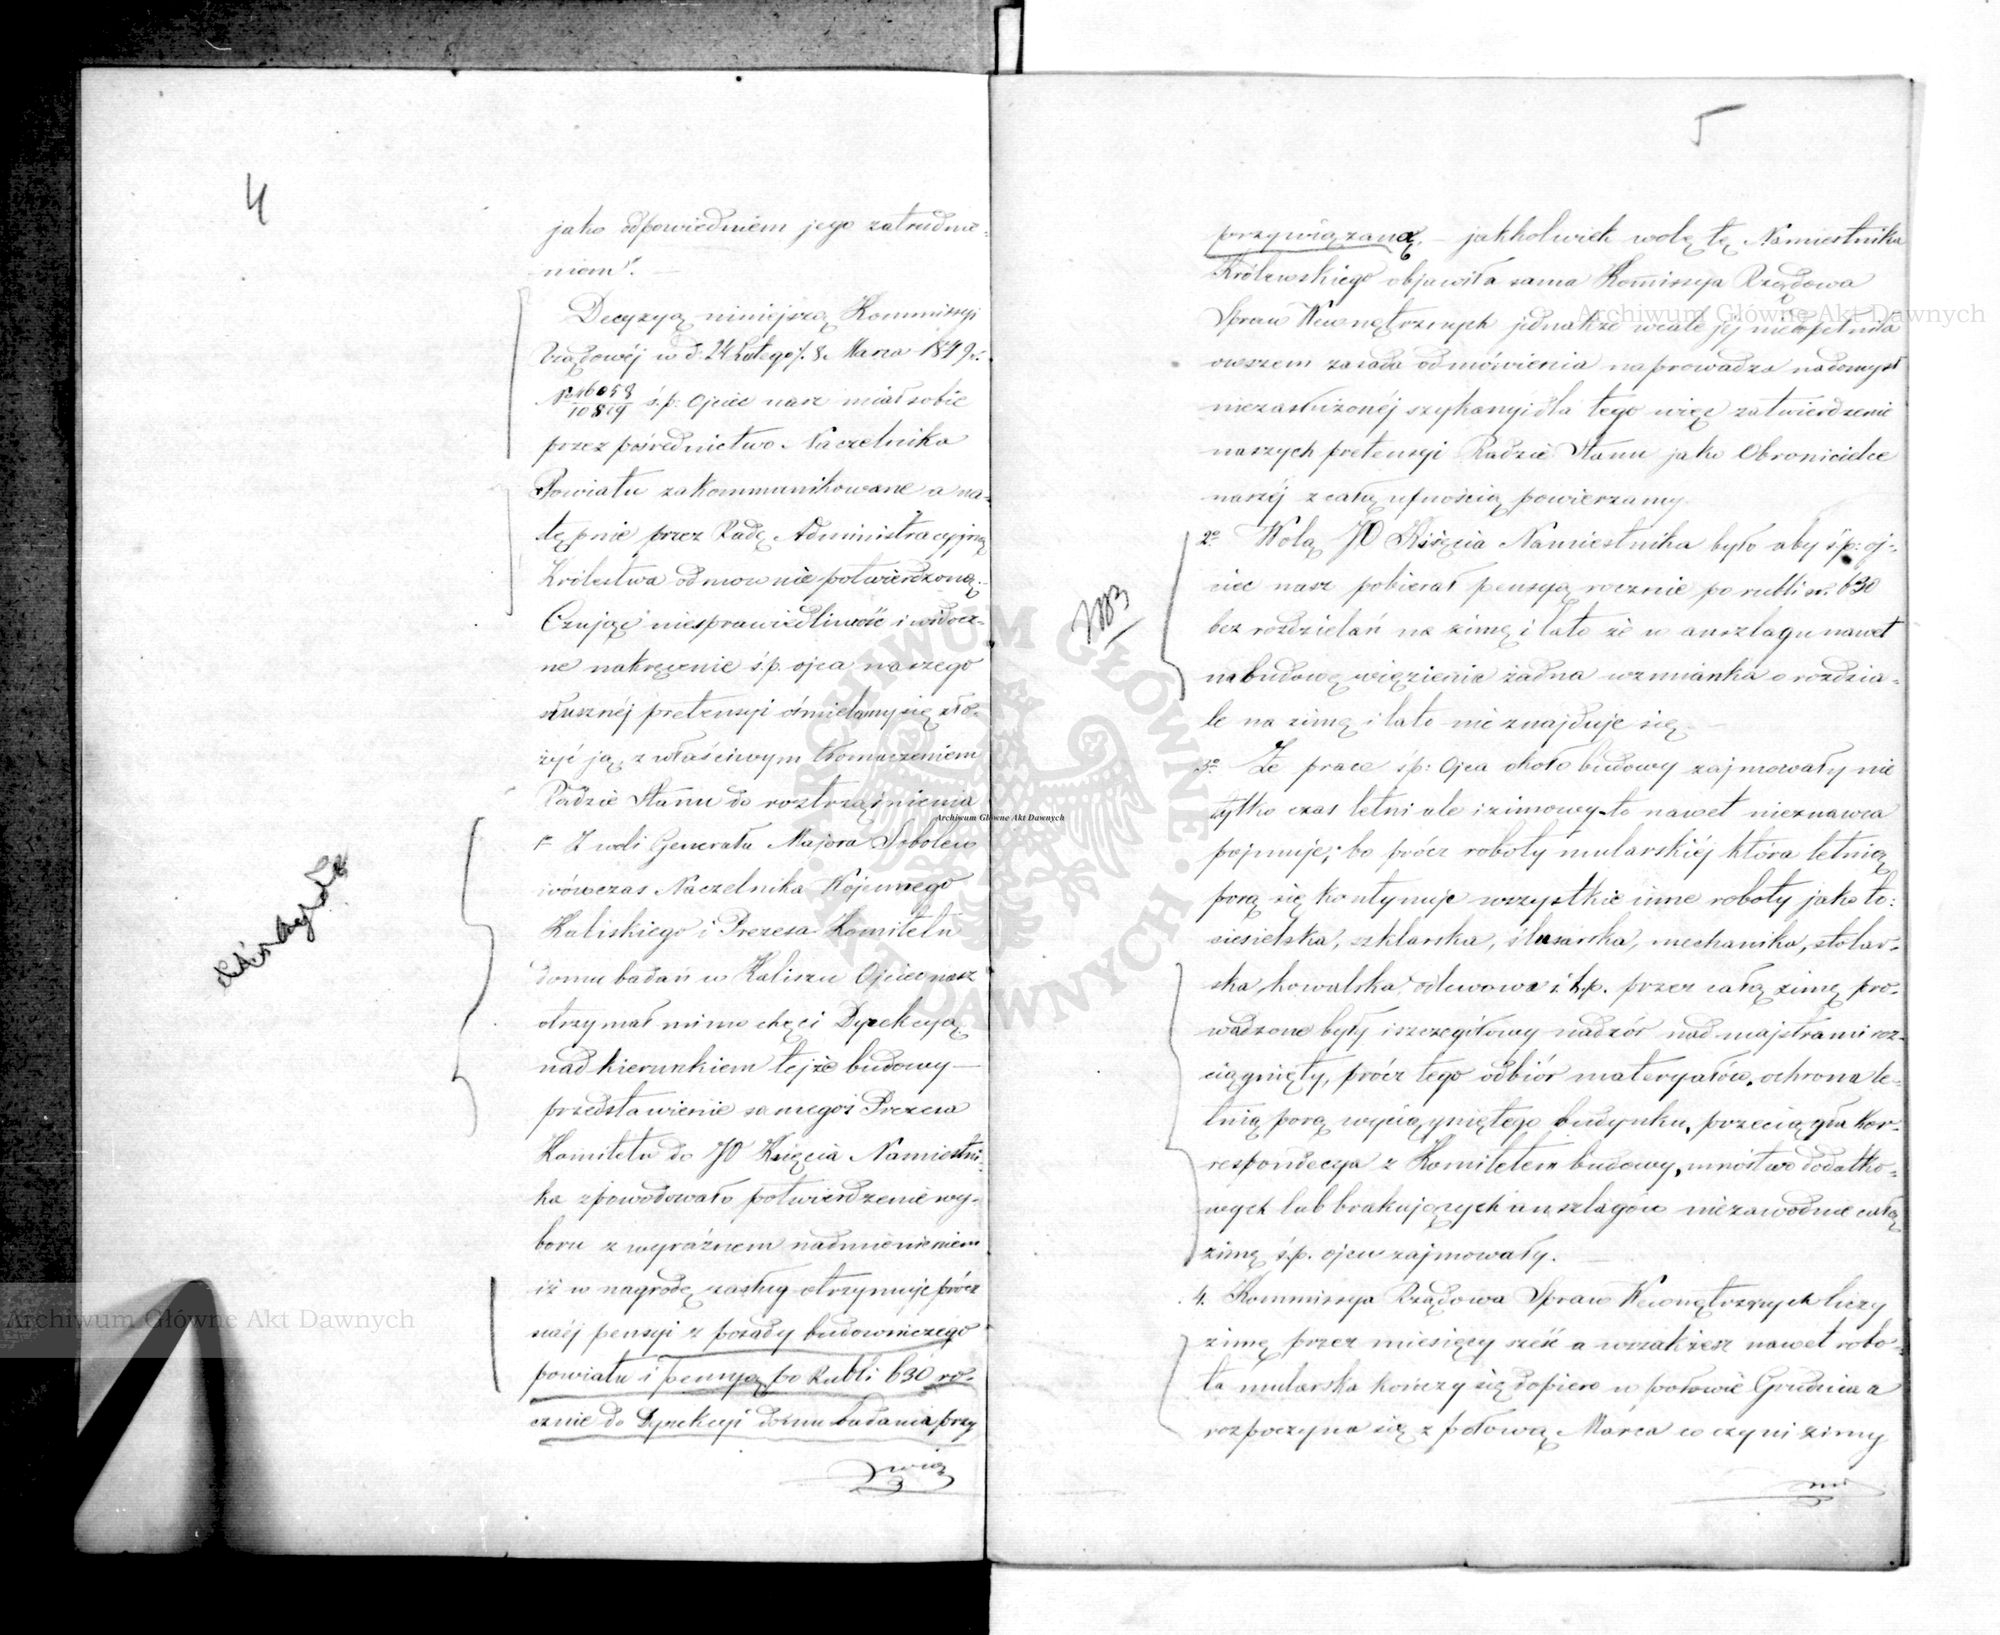 4
jako odpowiedniem jego zatrudnie-
niem".
Decyzyą niniejszą Kommissyi
Rządowéj w d. 24 Lutego/8 Marca 1849 r.
No 16058/10819 ś.p. Ojciec nasz miał sobie
przez pośrednictwo Naczelnika
Powiatu zakommunikowane a na-
stępnie przez Radę Administracyjną
Królestwa odmownie potwierdzoną.
Czując niesprawiedliwość i widocz-
ne nakręcenie ś.p. ojca naszego
słusznéj pretensyi ośmielamy się zło-
żyć ją z właściwym tłomaczeniem
Radzie Stanu do roztrząśnienia
1o Z woli Generała Majora Sobolew
wówczas Naczelnika Wojennego
Kaliskiego i Prezesa Komitetu
domu badań w Kaliszu Ojciec nasz
otrzymał mimo chęci Dyrekcyą
nad kierunkiem tejże budowy —
przedstawienie samegoż Prezesa
Komitetu do JO Księcia Namiestni-
ka spowodowało potwierdzenie wy-
boru z wyraźnem nadmienieniem
iż w nagrodę zasług otrzymuje prócz
swéj pensyi z posady budowniczego
powiatu i pensyą po Rubli 630 ro-
cznie do Dyrekcyi domu badania przy
wią
5
przywiązaną, — jakkolwiek wolę tę Namiestnika
Królewskiego objawiła sama Kommissya Rządowa
Spraw Wewnętrznych jednakże wcale jej niedopełniła
owszem zasada odmówienia naprowadza na domysł
niezasłużonéj szykany i dla tego więc zatwierdzenie
naszych pretensyi Radzie Stanu jako Obronicielce
naszéj z całą ufnością powierzamy.
2o Wolą JO Księcia Namiestnika było aby ś.p: oj-
ciec nasz pobierał pensyą rocznie po rubli sr. 630
bez rozdzielań na zimę i lato że w anszlagu nawet
na budowę więzienia żadna wzmianka o rozdzia-
le na zimę i lato nie znajduje się —
3o Że prace ś.p: Ojca około budowy zajmowały nie
tylko czas letni ale i zimowy to nawet nieznawca
pojmuje; bo prócz roboty mularskiéj która letnią
porą się kontynuje wszystkie inne roboty jako to:
ciesielska, szklarska, ślusarska, mechanika, stolar-
ska, kowalska, odlewowa i t.p. przez całą zimę pro-
wadzone były i szczegółowy nadzór nad majstrami roz-
ciągnięty, prócz tego odbiór materyałów, ochrona le-
tnią porą wyciągniętego budynku, przeciągła kor-
respondecya z Komitetem budowy, mnóstwo dodatko-
wych lub brakujących anszlagów niezawodnie całą
zimę ś.p. ojcu zajmowały. —
4. Kommissya Rządowa Spraw Wewnętrznych liczy
zimę przez miesięcy sześć a wszakżesz nawet robo-
ta mularska kończy się dopiero w połowie Grudnia a
rozpoczyna się z połową Marca co czyni zimy
mi
Archiwum Główne Akt Dawnych
Archiwum Główne Akt Dawnych
Archiwum Główne Akt Dawnych
ARCHIWUM GŁÓWNE AKT DAWNYCH